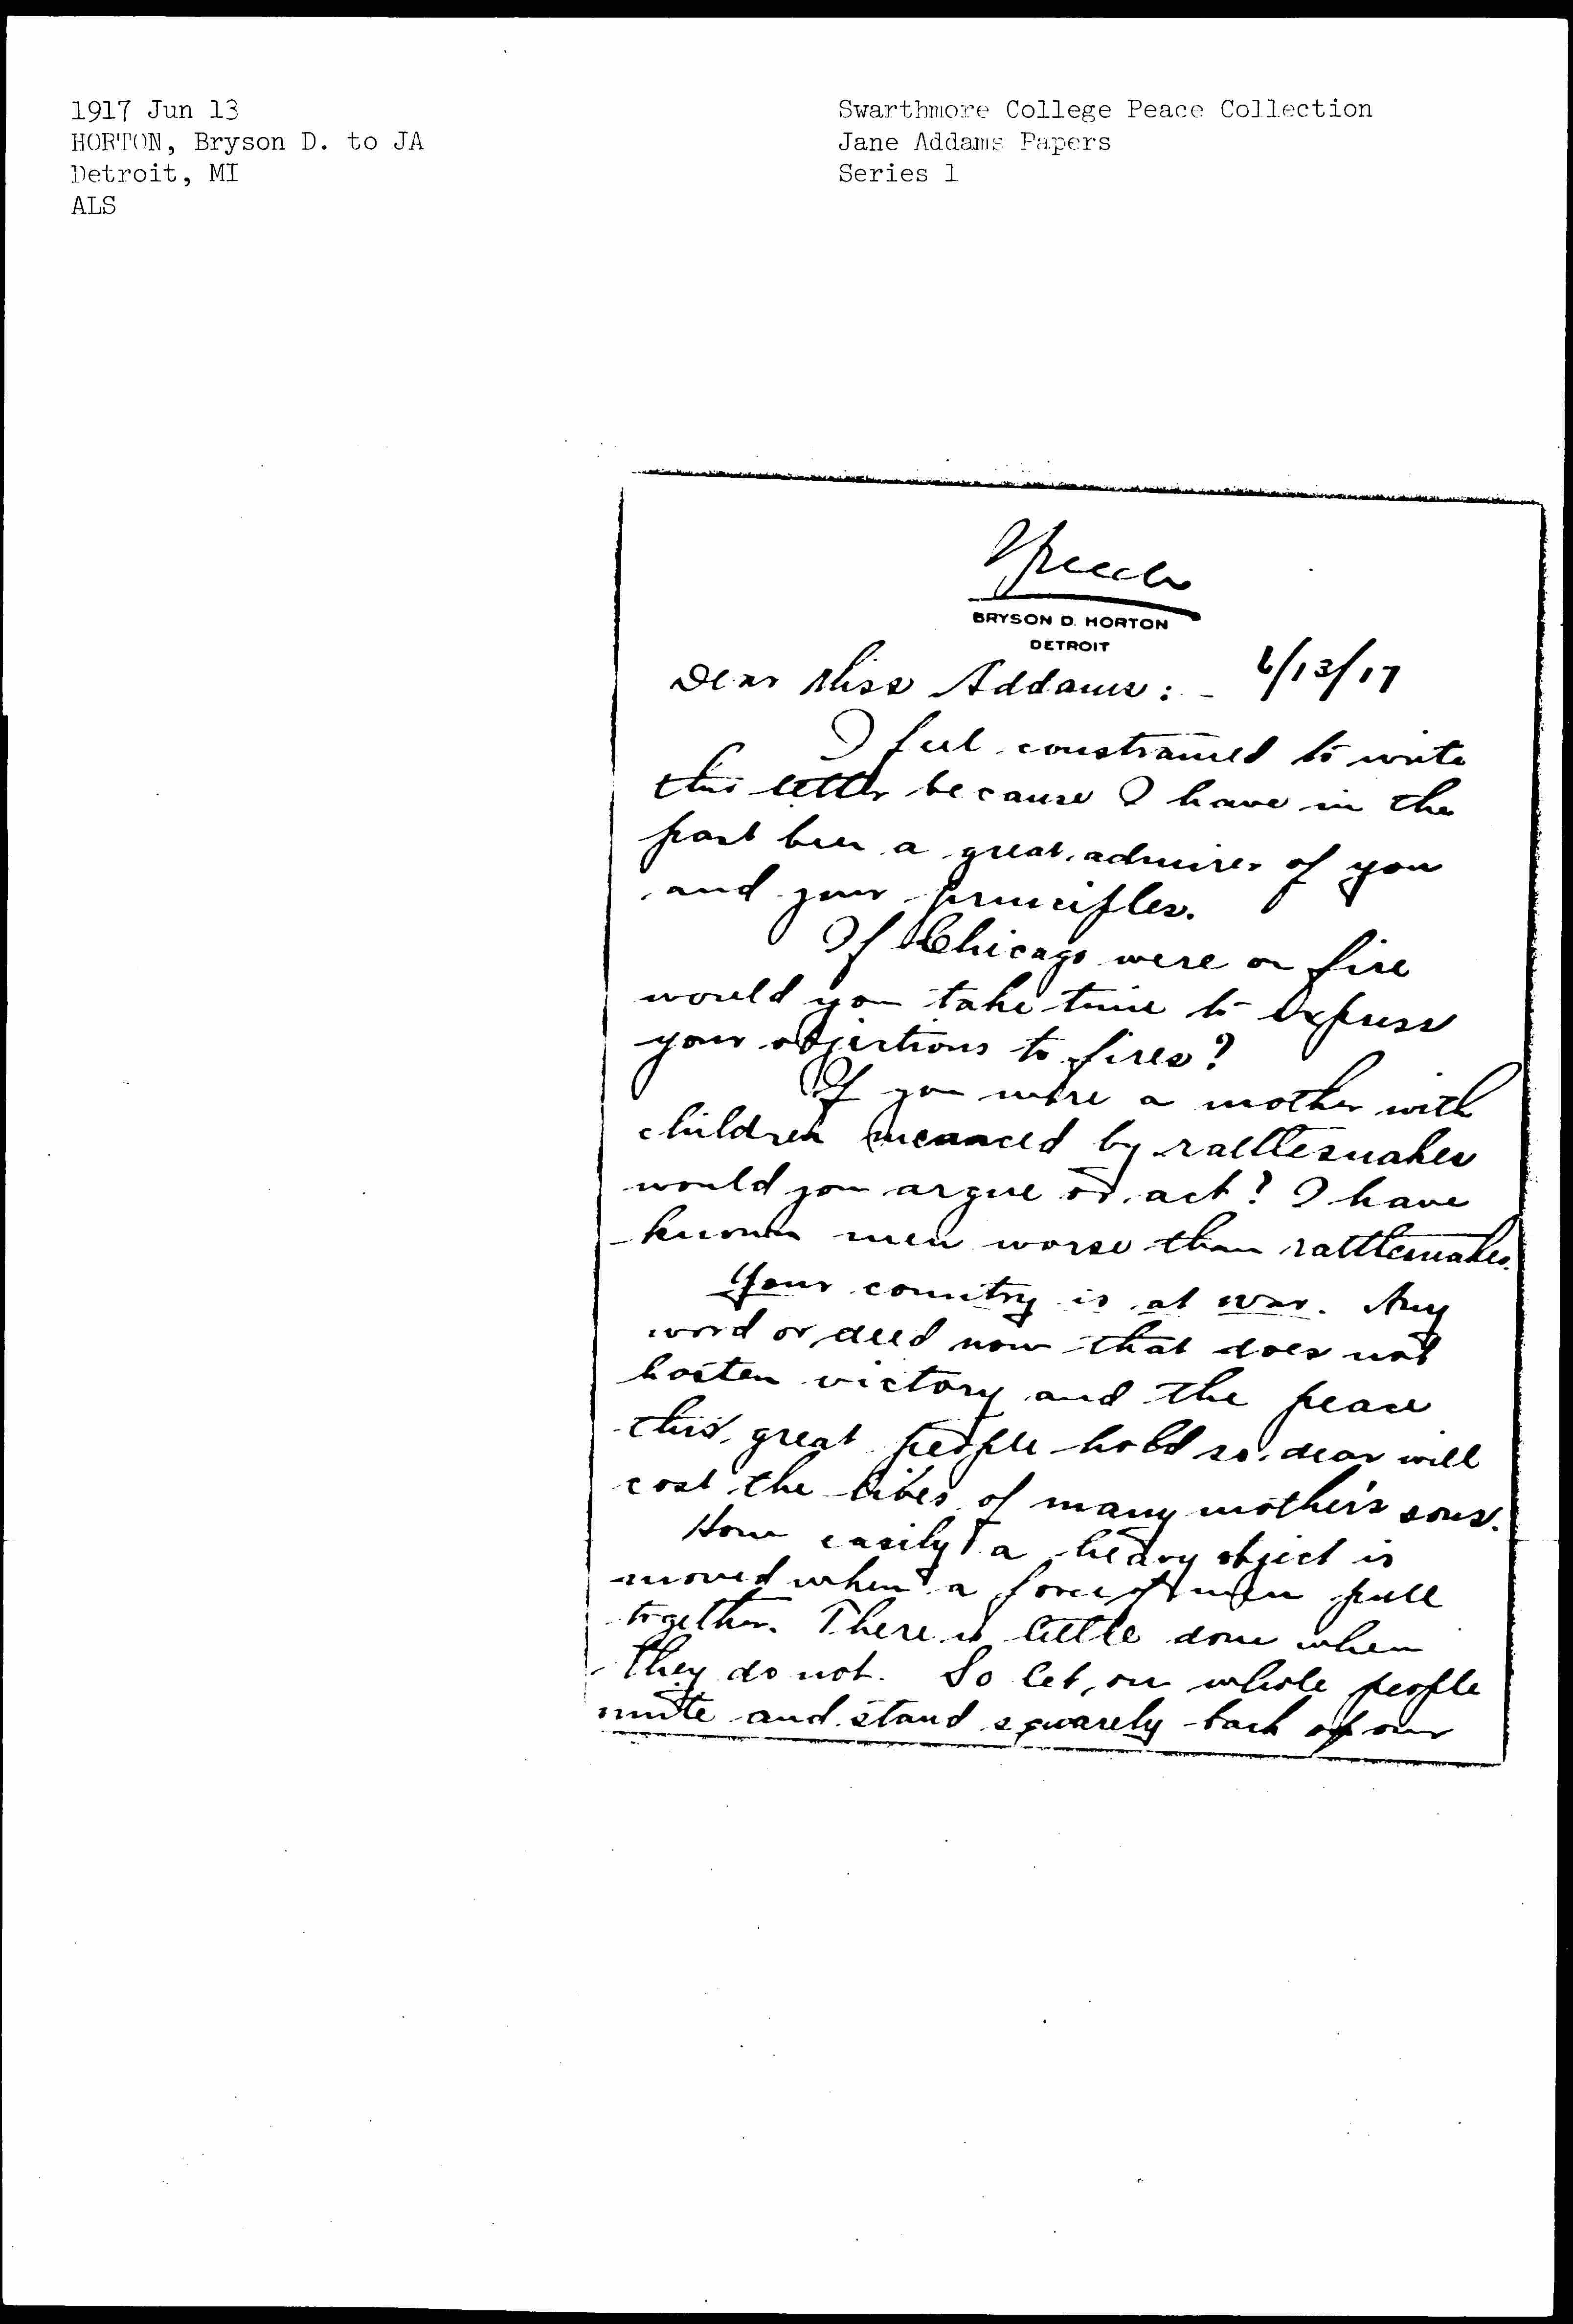 1917 Jun 13
HORTON, Bryson D. to JA
Detroit, MI
ALS
Swarthmore College Peace Collection
Jane Addams Papers
Series 1
Speech
BRYSON D. HORTON
DETROIT
Dear Miss Addams: - 6/13/17
I feel constrained to write
this letter because I have in the
past been a great admirer of you
and your principles.
If Chicago were on fire
would you take time to express
your objections to fires?
If you were a mother with
children menaced by rattlesnakes
would you argue or act? I have
known men worse than rattlesnakes.
Your country is at war. Any
word or deed now that does not
hasten victory and the peace
this great people hold so dear will
cost the lives of many mother's sons.
How easily a heavy object is
moved when a force of men pull
together. There is little done when
they do not. So let our whole people
unite and stand squarely back of our